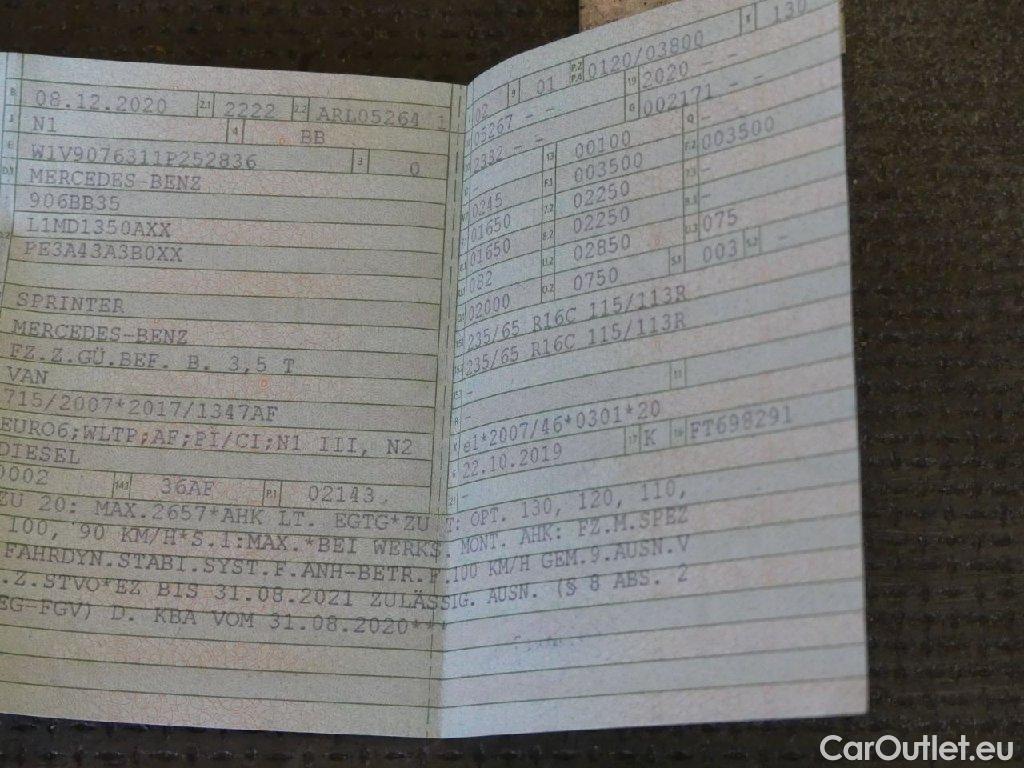 B 08.12.2020 2.1 2222 2.2 ARL05264 1
J N1 4 BB
E W1V9076311P252836 3 0
MERCEDES-BENZ
906BB35
L1MD1350AXX
PE3A43A3B0XX
SPRINTER
MERCEDES-BENZ
FZ.Z.GÜ.BEF. B. 3,5 T
VAN
715/2007*2017/1347AF
EURO6;WLTP;AF;PI/CI;N1 III, N2
DIESEL
0002 14.1 36AF P.1 02143
02 9 01 P.2 P.4 0120/03800 T 130
05267 - - 19 2020 - -
2332 - - G 002171 - -
- 13 00100 Q -
0245 F.1 003500 F.2 003500
01650 7.2 02250 7.3 -
01650 8.2 02250 8.3 -
082 U.2 02850 U.3 075
02000 O.2 0750 S.1 003 S.2 -
235/65 R16C 115/113R
235/65 R16C 115/113R
-
R - 11
K e1*2007/46*0301*20
6 22.10.2019 17 K 16 FT698291
21 -
ZU 20: MAX.2657*AHK LT. EGTG*ZU T: OPT. 130, 120, 110,
100, 90 KM/H*S.1:MAX.*BEI WERKS. MONT. AHK: FZ.M.SPEZ
FAHRDYN.STABI.SYST.F.ANH-BETR.F.100 KM/H GEM.9.AUSN.V
.Z.STVO*EZ BIS 31.08.2021 ZULÄSSIG. AUSN. (§ 8 ABS. 2
EG-FGV) D. KBA VOM 31.08.2020***
CarOutlet.eu